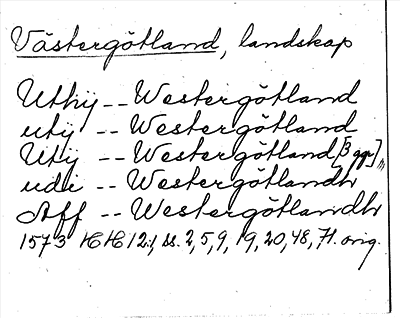 Västergötland, landskap
Uthÿ -- Westergötland
utÿ -- Westergötland
Utÿ -- Westergötland [3 ggr],,
udi -- Westergötlandh
Aff -- Westergötlandh
1573 HH 12:, ss. 2, 5, 9, 19, 20, 48, 71. orig.